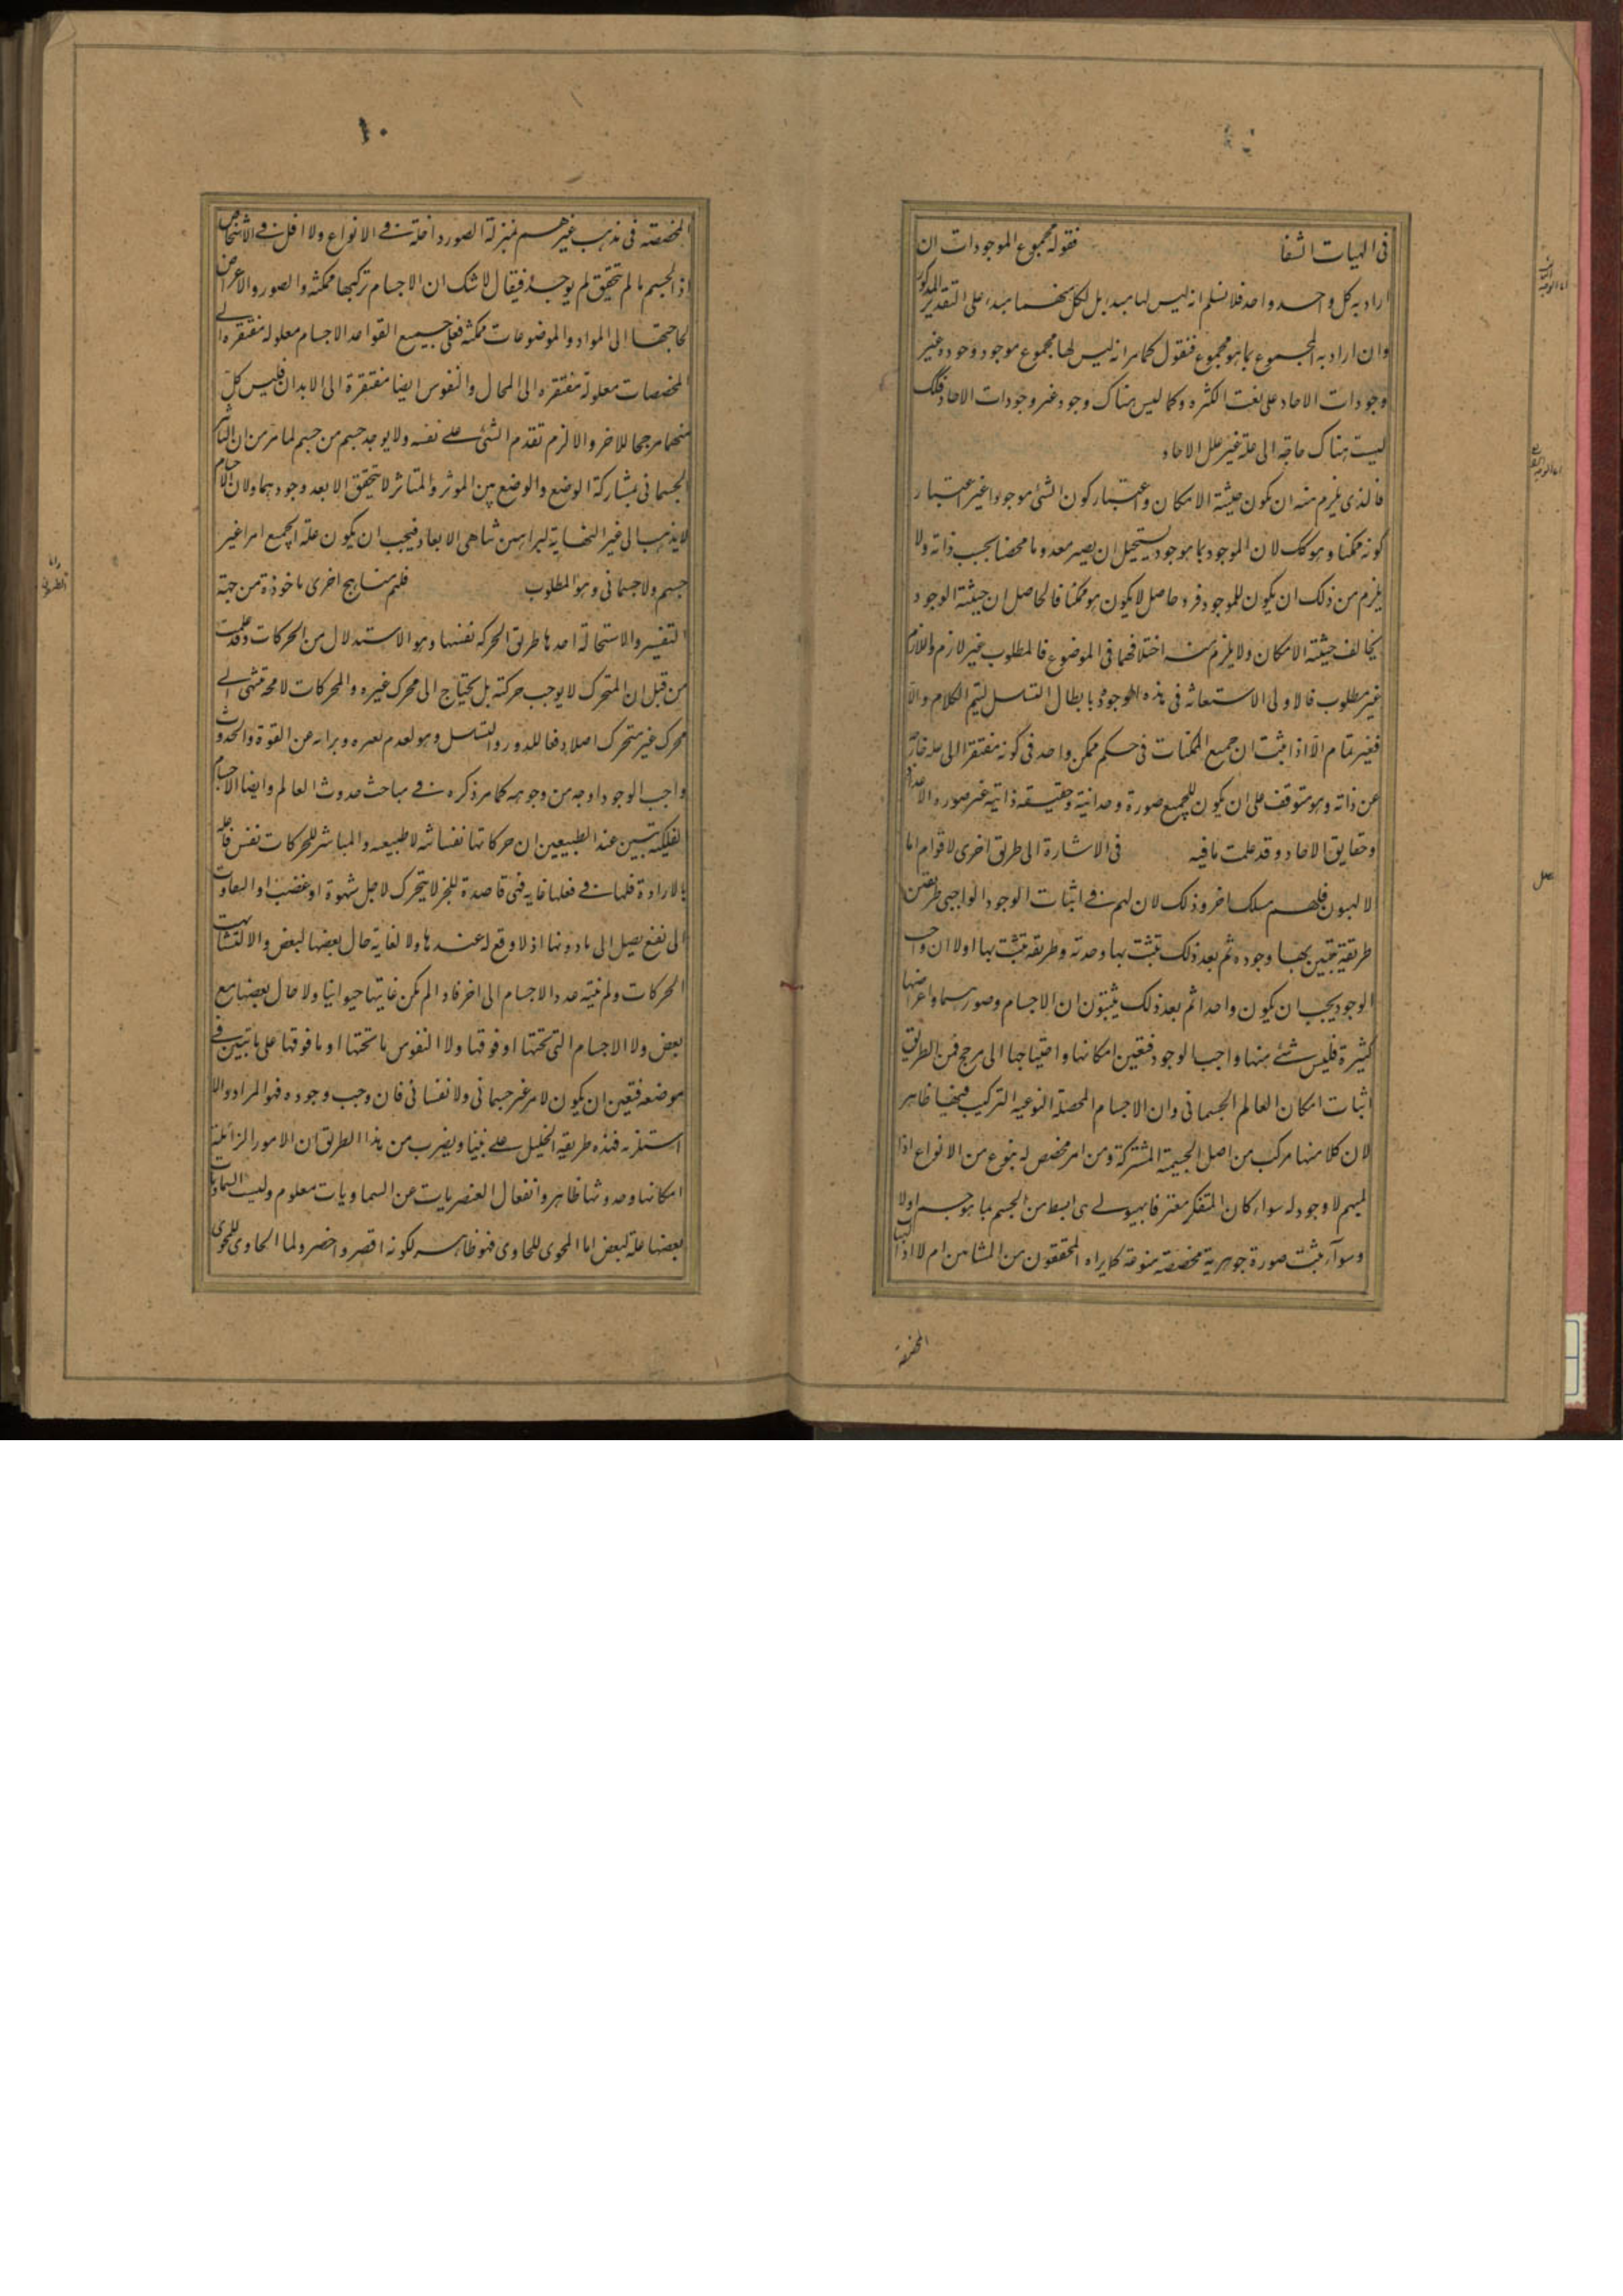 فى الهيات الشفا فقوله مجموع الموجودات ان
اراد به كل واحد واحد فلا نسلم انه ليس لها مبدء بل لكل منهما مبدء على التقدير المذكور
وان اراد به المجموع بما هو مجموع فنقول كما مر انه ليس لها مجموع موجود وجوده غير
وجودات الاحاد على نعت الكثره وكما ليس هناك وجود غير وجودات الاحاد فكك
ليست هناك حاجة الى علة غير علل الاحاد
فالذى يلزم منه ان يكون حيثية الامكان واعتبار كون الشئ موجودا غير اعتبار
كونه ممكنا وهو كك لان الموجود بما هو موجود يستحيل ان يصير معدوما محضا بحسب ذاته ولا
يلزم من ذلك ان يكون للموجود فرد حاصل لا يكون هو ممكنا فالحاصل ان حيثية الوجود
يخالف حيثية الامكان ولا يلزم منه اختلافهما فى الموضوع فالمطلوب غير لازم واللازم
غير مطلوب فالاولى الاستعانه فى هذه الوجوه بابطال التسلسل ليتم الكلام والا
فغير تمام الا اذا ثبت ان جميع الممكنات فى حكم ممكن واحد فى كونه مفتقرا الى علة خارجة
عن ذاته وهو متوقف على ان يكون للجميع صورة وحدانية وحقيقة ذاتية غير صوره الاعداد
وحقايق الاحاد وقد علمت ما فيه فى الاشارة الى طرق اخرى لاقوام اما
الالهيون فلهم مسلك اخر وذلك لان لهم فى اثبات الوجود الواجبى طريقين
طريقة تبين بها وجوده ثم بعد ذلك تثبت بها وحدته وطريقه تثبت بها اولا ان واجب
الوجود يجب ان يكون واحدا ثم بعد ذلك يثبتون ان الاجسام وصورها واعراضها
كثيرة فليس شئ منها واجب الوجود فتعين امكانها واحتياجها الى مرجح فمن الطريق
اثبات امكان العالم الجسمانى وان الاجسام المحصلة النوعيه التركيب فيها ظاهر
لان كلا منها مركب من اصل الجسمية المشتركة ومن امر مخصص له بنوع من الانواع اذا
المبهم لا وجود له سواء كان المتفكر معترفا بهيولى هى ابسط من الجسم بما هو جسم اولا
وسواء يثبت صورة جوهرية مخصصة منوعة كما يراه المحققون من المشائين ام لا اذ
المخصصة
١٠
المخصصة فى مذهب غيرهم بمنزلة الصور داخلة فى الانواع ولا اقل فى الاشخاص
اذ الجسم ما لم يتحقق لم يوجد فيقال لا شك ان الاجسام تركبها ممكنة والصور والاعراض
لحاجتها الى المواد والموضوعات ممكنة فعلى جميع القواعد الاجسام معلولة مفتقره الى
المخصصات معلولة مفتقره الى المحال والنفوس ايضا مفتقرة الى الابدان فليس كل
منهما مرجحا للاخر والا لزم تقدم الشئ على نفسه ولا يوجد جسم من جسم لما مر من ان التاثير
الجسمانى بمشاركة الوضع والوضع بين الموثر والمتاثر لا يتحقق الا بعد وجودهما ولان الاجسام
لا يذهب الى غير النهاية لبراهين تناهى الابعاد فيجب ان يكون علة الجميع امرا غير
جسم ولا جسمانى وهو المطلوب فلهم مناهج اخرى ماخوذة من جهة
التغير والاستحالة احدها طريق الحركه نفسها وهو الاستدلال من الحركات وقد علمت
من قبل ان المتحرك لا يوجب حركته بل يحتاج الى محرك غيره والمحركات لا محه تنتهى الى
محرك غير متحرك اصلا دفعا للدور والتسلسل وهو لعدم تغيره وبراءته عن القوة والحدوث
واجب الوجود او جه من وجوهه كما مر ذكره فى مباحث حدوث العالم وايضا الاجسام
الفلكية تبين عند الطبيعين ان حركاتها نفسانيه لا طبيعيه والمباشر للحركات نفس فاعله
بالارادة فلها فى فعلها غايه فهى قاصدة للخير لا يتحرك لاجل شهوة او غضب
الى نفع يصل الى ما دونها اذ لا وقع له عندها ولا لغاية حال بعضها لبعض والا لتشابهت
الحركات ولم ينته عدد الاجسام الى اخر فاذا لم يكن غايتها حيوانيا ولا حال بعضها مع
بعض ولا الاجسام التى تحتها او فوقها ولا النفوس ما تحتها او ما فوقها على ما تبين فى
موضعه فتعين ان يكون لامر غير جسمانى ولا نفسانى فان وجب وجوده فهو المراد والا
استلزمه فهذه طريقة الخليل على نبينا ويقرب من هذا الطريق ان الامور الزائلة
امكانها وحدوثها ظاهر وانفعال العنصريات عن السماويات معلوم وليست السماويات
بعضها علة لبعض اما المحوى للحاوى فهو ظاهر لكونه اقصر واخس ولما الحاوى للمحوى